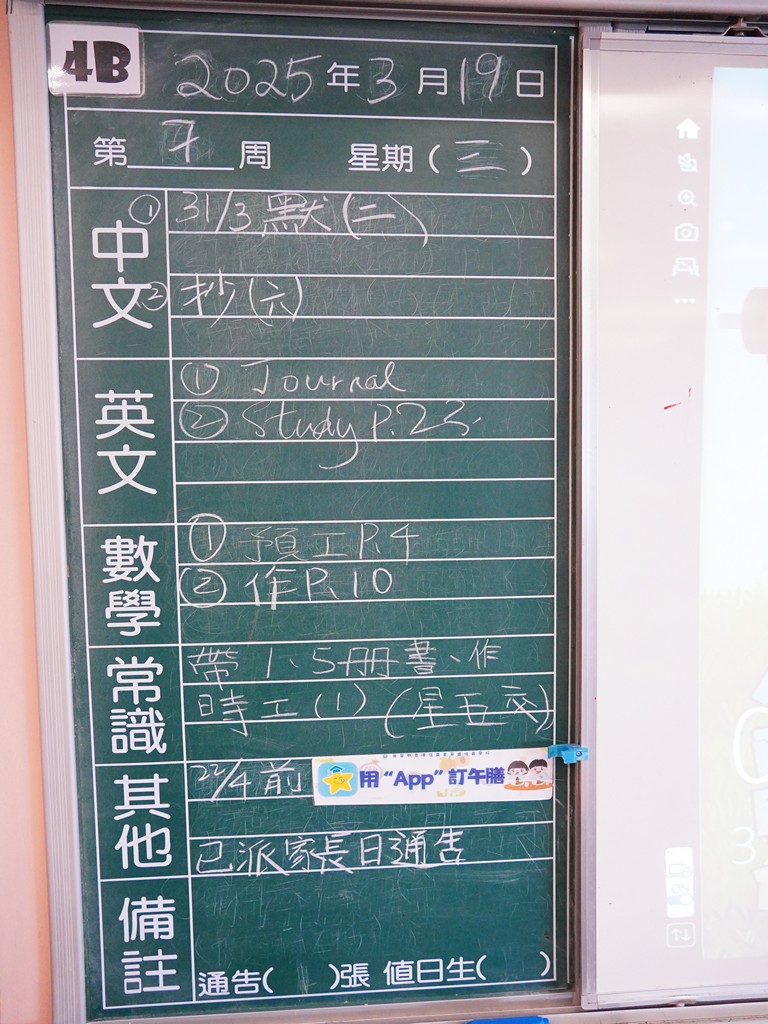 4B
2025年3月19日
第 7 周 星期(三)
中文
① 31/3 默(二)
② 抄(六)
英文
① Journal
② Study P.23.
數學
① 預工P.4
② 作P.10
常識
帶1、5冊書、作
時工(1) (星五交)
其他
22/4前 用“App”訂午膳
已派家長日通告
備註
通告( )張 值日生( )
ON
3